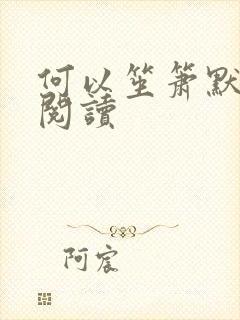 何以笙簫默
閱讀
阿宸